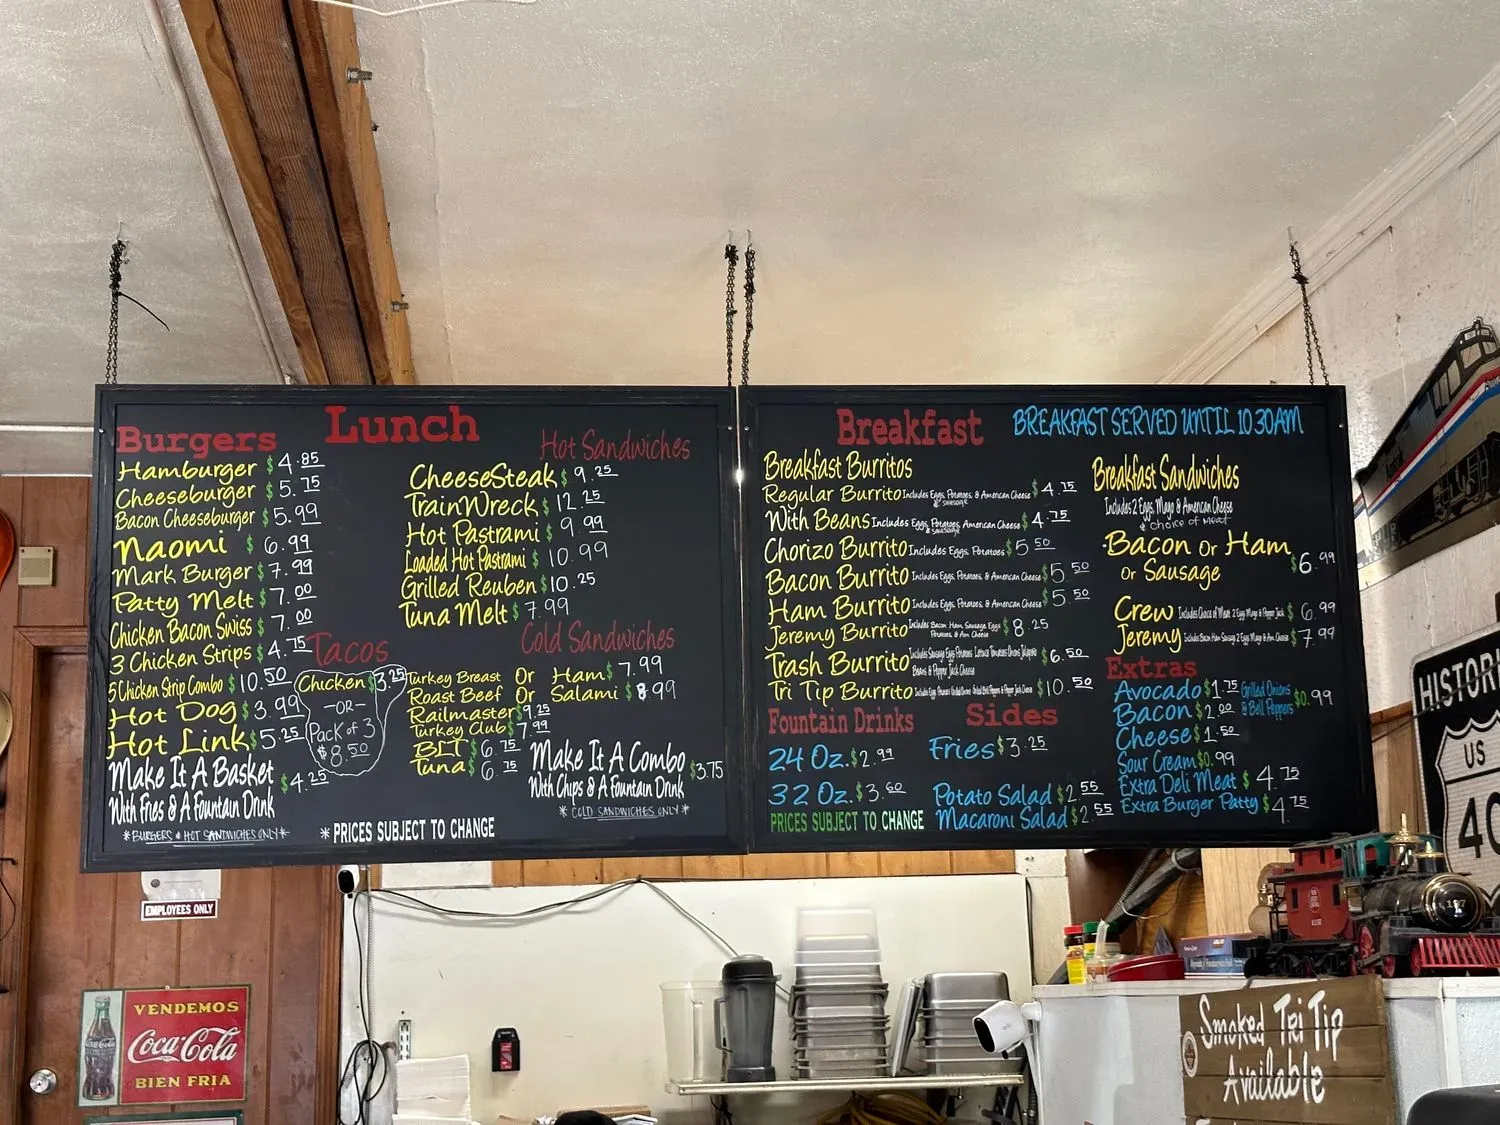 Lunch
Burgers
Hamburger $4.85
Cheeseburger $5.75
Bacon Cheeseburger $5.99
Naomi $6.99
Mark Burger $7.99
Patty Melt $7.00
Chicken Bacon Swiss $7.00
3 Chicken Strips $4.75
5 Chicken Strip Combo $10.50
Hot Dog $3.99
Hot Link $5.25
Make It A Basket
With Fries & A Fountain Drink
$4.25
*BURGERS & HOT SANDWICHES ONLY*
Tacos
Chicken $3.25
-OR-
Pack of 3
$8.50
Hot Sandwiches
CheeseSteak $9.25
TrainWreck $12.25
Hot Pastrami $9.99
Loaded Hot Pastrami $10.99
Grilled Reuben $10.25
Tuna Melt $7.99
Cold Sandwiches
Turkey Breast Or Ham $7.99
Roast Beef Or Salami $8.99
Railmaster $9.25
Turkey Club $7.99
BLT $6.75
Tuna $6.75
Make It A Combo
With Chips & A Fountain Drink
$3.75
*COLD SANDWICHES ONLY*
*PRICES SUBJECT TO CHANGE
Breakfast
BREAKFAST SERVED UNTIL 10:30AM
Breakfast Burritos
Regular Burrito Includes Eggs, Potatoes, & American Cheese $4.75
& SAUSAGE
With Beans Includes Eggs, Potatoes, American Cheese $4.75
& SAUSAGE
Chorizo Burrito Includes Eggs, Potatoes $5.50
Bacon Burrito Includes Eggs, Potatoes, & American Cheese $5.50
Ham Burrito Includes Eggs, Potatoes, & American Cheese $5.50
Jeremy Burrito Includes Bacon, Ham, Sausage, Eggs $8.25
Potatoes, & Am. Cheese
Trash Burrito Includes Sausage Eggs Potatoes Lettuce Tomatoes Onions Jalapeno $6.50
Beans & Pepper Jack Cheese
Tri Tip Burrito Includes Eggs Potatoes Grilled Onions Bell Peppers & Pepper Jack Cheese $10.50
Fountain Drinks
24 Oz. $2.99
32 Oz. $3.60
PRICES SUBJECT TO CHANGE
Sides
Fries $3.25
Potato Salad $2.55
Macaroni Salad $2.55
Breakfast Sandwiches
Includes 2 Eggs, Mayo & American Cheese
& choice of meat
Bacon Or Ham
Or Sausage
$6.99
Crew Includes Choice of Meat 2 Eggs Mayo & Pepper Jack $6.99
Jeremy Includes Bacon Ham Sausage 2 Eggs Mayo & Am. Cheese $7.99
Extras
Avocado $1.75
Bacon $2.00
Cheese $1.50
Sour Cream $0.99
Extra Deli Meat $4.75
Extra Burger Patty $4.75
Grilled Onions
& Bell Peppers
$0.99
HISTORIC
US
40
EMPLOYEES ONLY
VENDEMOS
Coca-Cola
BIEN FRIA
Smoked Tri Tip
Available
197